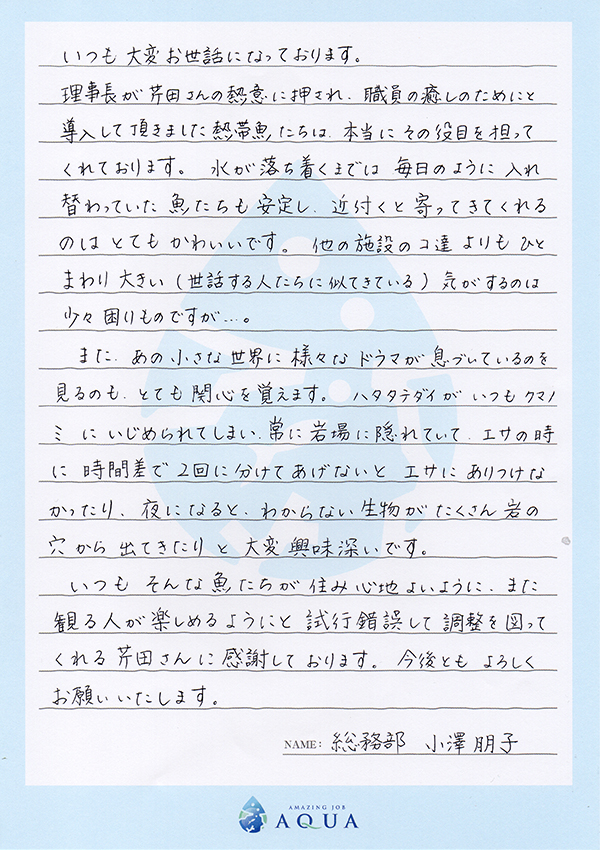 いつも大変お世話になっております。
理事長が芹田さんの熱意に押され、職員の癒しのためにと
導入して頂きました熱帯魚たちは、本当にその役目を担って
くれております。水が落ち着くまでは毎日のように入れ
替わっていた魚たちも安定し、近付くと寄ってきてくれる
のはとてもかわいいです。他の施設のコ達よりもひと
まわり大きい(世話する人たちに似てきている)気がするのは
少々困りものですが…。
また、あの小さな世界に様々なドラマが息づいているのを
見るのも、とても関心を覚えます。ハタタテダイがいつもクマノ
ミにいじめられてしまい、常に岩場に隠れていて、エサの時
に時間差で2回に分けてあげないとエサにありつけな
かったり、夜になると、わからない生物がたくさん岩の
穴から出てきたりと大変興味深いです。
いつもそんな魚たちが住み心地よいように、また
観る人が楽しめるようにと試行錯誤して調整を図って
くれる芹田さんに感謝しております。今後ともよろしく
お願いいたします。
NAME: 総務部 小澤朋子
AMAZING JOB
AQUA